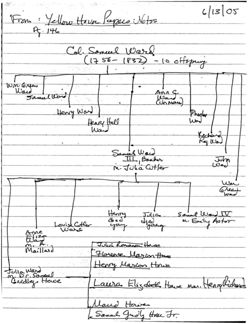 6/13/05
From: Yellow House Papers Notes
Pg. 146
Col. Samuel Ward
(1756-1832) - 10 offspring
Wm Greene
Ward
Samuel Ward
Henry Ward
Henry Hall
Ward
Ann C.
Ward
Phoebe
Ward
Richard
Ray Ward
John
Ward
Wm
Greene
Ward
Samuel Ward
III, Banker
m. Julia Cutler
Julia Ward
m. Dr. Samuel
Gridley Howe
Anne
Eliza
Ward
m.
Maillard
Louisa Cutler
Ward
Henry
died
young
Julia
died
young
Samuel Ward IV
m. Emily Astor
Julia Romana Howe
Florence Marion Howe
Henry Marion Howe
Laura Elizabeth Howe mar. Henry Richards
Maud Howe
Samuel Gridley Howe Jr.